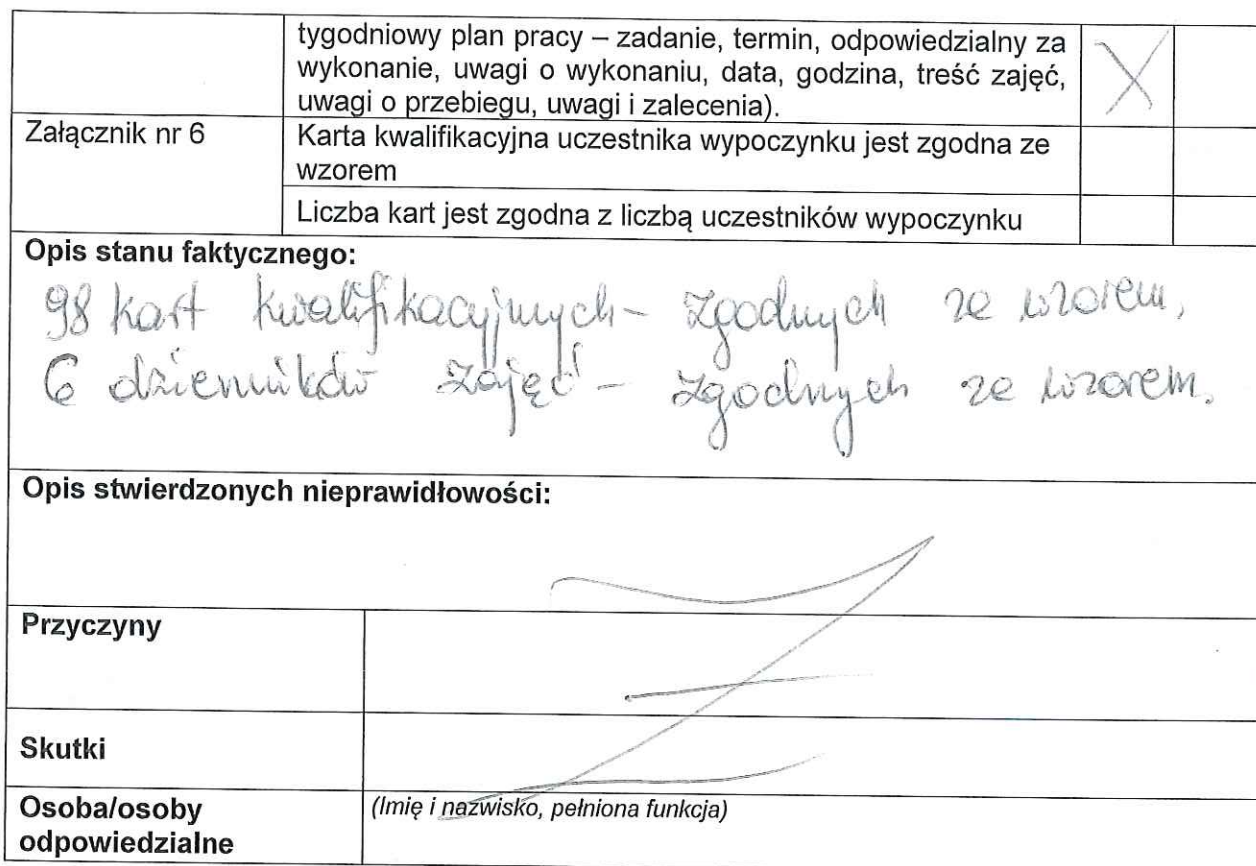 tygodniowy plan pracy – zadanie, termin, odpowiedzialny za
wykonanie, uwagi o wykonaniu, data, godzina, treść zajęć,
uwagi o przebiegu, uwagi i zalecenia).
X
Załącznik nr 6
Karta kwalifikacyjna uczestnika wypoczynku jest zgodna ze
wzorem
Liczba kart jest zgodna z liczbą uczestników wypoczynku
Opis stanu faktycznego:
98 kart kwalifikacyjnych – zgodnych ze wzorem,
6 dzienników zajęć – zgodnych ze wzorem.
Opis stwierdzonych nieprawidłowości:
Przyczyny
Skutki
Osoba/osoby
odpowiedzialne
(Imię i nazwisko, pełniona funkcja)